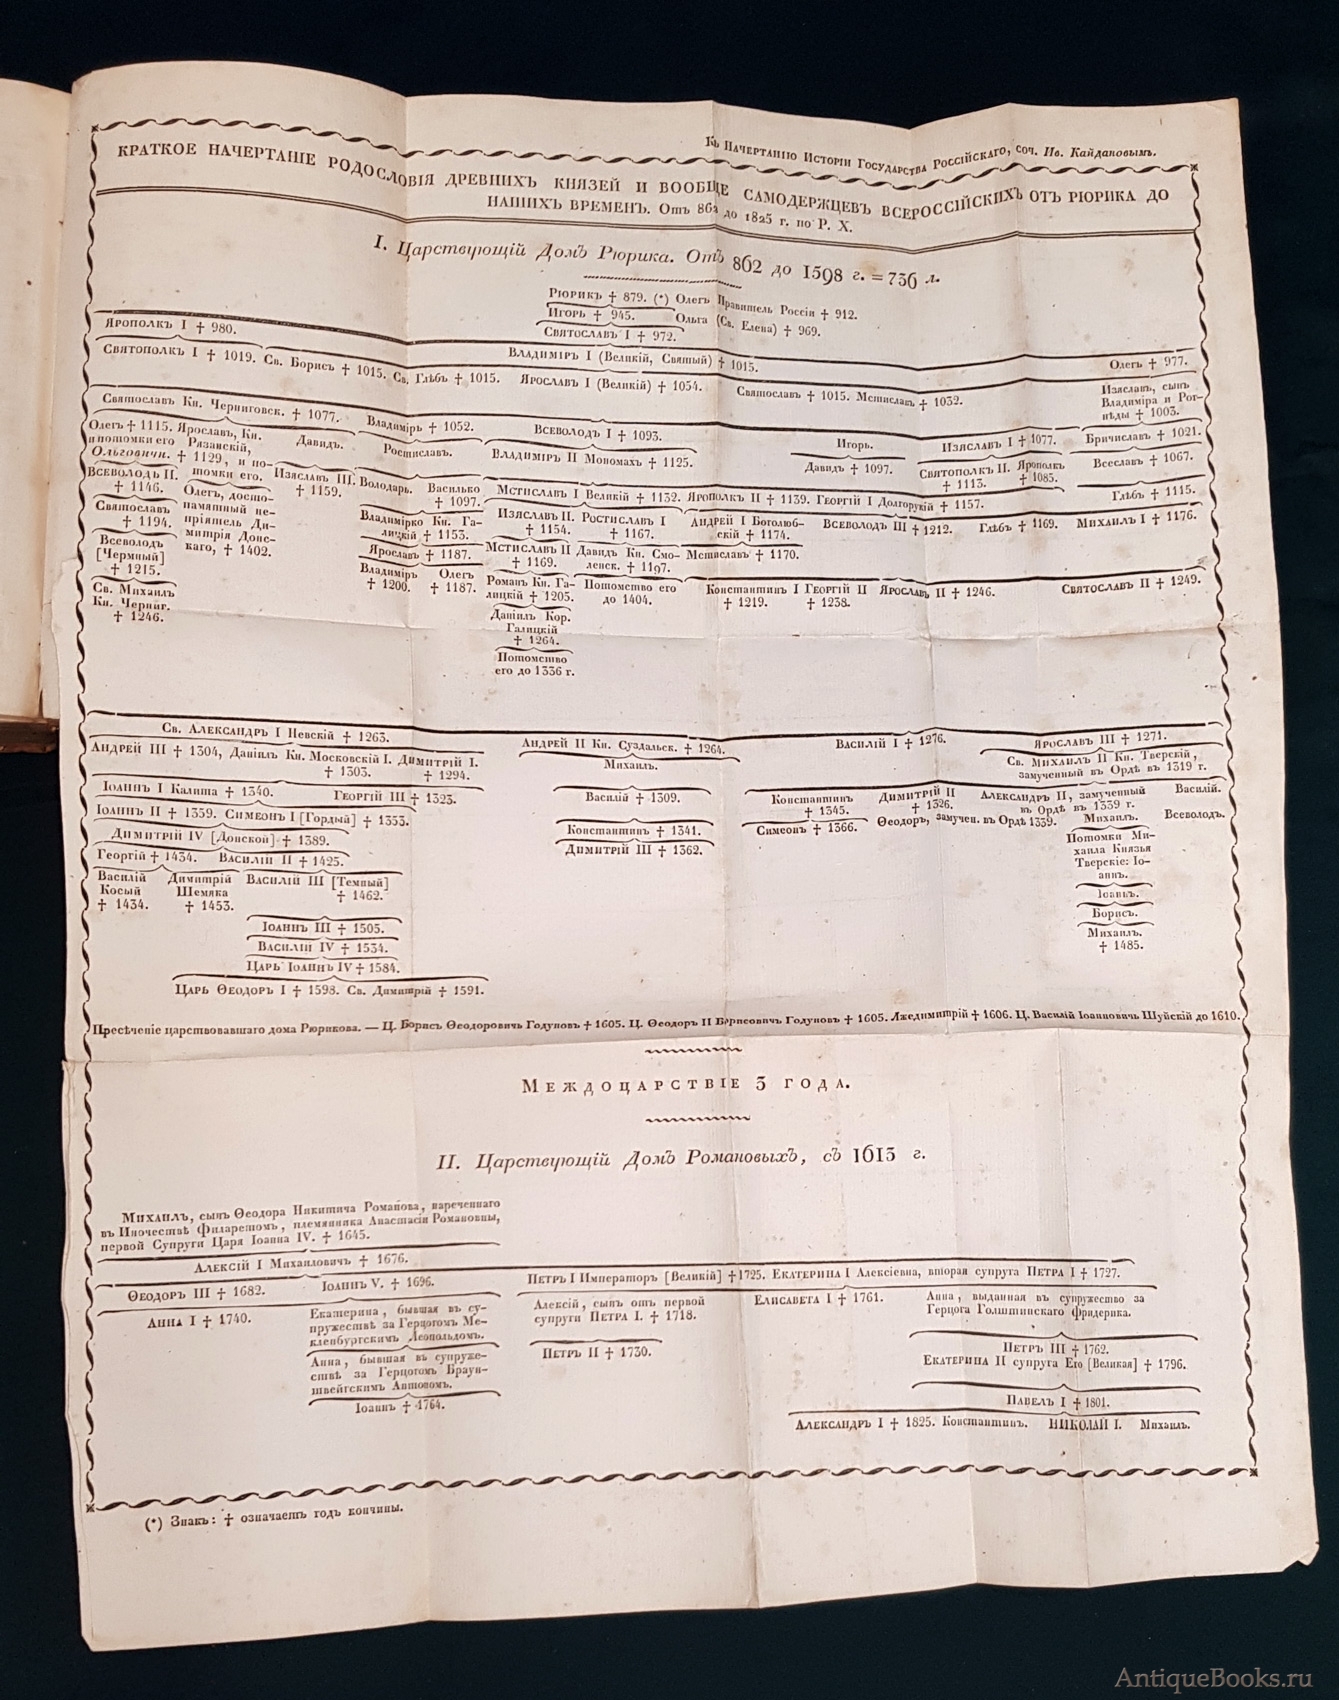 Къ Начертанію Исторіи Государства Россійскаго, соч. Ив. Кайдановымъ.
КРАТКОЕ НАЧЕРТАНІЕ РОДОСЛОВІЯ ДРЕВНИХЪ КНЯЗЕЙ И ВООБЩЕ САМОДЕРЖЦЕВЪ ВСЕРОССІЙСКИХЪ ОТЪ РЮРИКА ДО
НАШИХЪ ВРЕМЕНЪ. Отъ 862 до 1825 г. по Р. Х.
I. Царствующій Домъ Рюрика. Отъ 862 до 1598 г. = 736 л.
Рюрикъ † 879. (*) Олегъ Правитель Россіи † 912.
Игорь † 945. Ольга (Св. Елена) † 969.
Святославъ I † 972.
Ярополкъ I † 980.
Владиміръ I (Великій, Святый) † 1015.
Олегъ † 977.
Святополкъ I † 1019. Св. Борисъ † 1015. Св. Глѣбъ † 1015. Ярославъ I (Великій) † 1054. Святославъ † 1015. Мстиславъ † 1032.
Изяславъ, сынъ
Владиміра и Рог-
нѣды † 1003.
Святославъ Кн. Черниговск. † 1077. Владиміръ † 1052. Всеволодъ I † 1093. Игорь. Изяславъ I † 1077. Бричиславъ † 1021.
Олегъ † 1115.
и потомки его
Ольговичи.
Ярославъ, Кн.
Рязанскій,
† 1129, и по-
томки его.
Давидъ.
Ростиславъ.
Владиміръ II Мономахъ † 1125.
Давидъ † 1097.
Святополкъ II.
† 1113.
Ярополкъ
† 1085.
Всеславъ † 1067.
Всеволодъ II.
† 1146.
Изяславъ III.
† 1159.
Володарь.
Василько
† 1097.
Мстиславъ I Великій † 1132. Ярополкъ II † 1139. Георгій I Долгорукій † 1157.
Глѣбъ † 1115.
Святославъ
† 1194.
Олегъ, досто-
памятный не-
пріятель Ди-
митрія Донс-
каго, † 1402.
Владимірко Кн. Га-
лицкій † 1153.
Изяславъ II.
† 1154.
Ростиславъ I
† 1167.
Андрей I Боголюб-
скій † 1174.
Всеволодъ III † 1212. Глѣбъ † 1169. Михаилъ I † 1176.
Всеволодъ
[Чермный]
† 1215.
Ярославъ † 1187.
Мстиславъ II
† 1169.
Давидъ Кн. Смо-
ленск. † 1197.
Мстиславъ † 1170.
Св. Михаилъ
Кн. Черниг.
† 1246.
Владиміръ
† 1200.
Олегъ
† 1187.
Романъ Кн. Га-
лицкій † 1205.
Потомство его
до 1404.
Константинъ I
† 1219.
Георгій II
† 1238.
Ярославъ II † 1246.
Святославъ II † 1249.
Даніилъ Кор.
Галицкій
† 1264.
Потомство
его до 1336 г.
Св. Александръ I Невскій † 1263. Андрей II Кн. Суздальск. † 1264. Василій I † 1276. Ярославъ III † 1271.
Андрей III † 1304, Даніилъ Кн. Московскій I. Димитрій I.
† 1303. † 1294.
Михаилъ.
Св. Михаилъ II Кн. Тверскій,
замученный въ Ордѣ въ 1319 г.
Іоаннъ I Калита † 1340. Георгій III † 1323.
Василій † 1309.
Константинъ
† 1345.
Димитрій II
† 1326.
Александръ II, замученный
въ Ордѣ въ 1339 г.
Василій.
Іоаннъ II † 1359. Симеонъ I [Гордый] † 1353.
Константинъ † 1341.
Симеонъ † 1366.
Ѳеодоръ, замучен. въ Ордѣ 1339.
Михаилъ.
Всеволодъ.
Димитрій IV [Донской] † 1389.
Димитрій III † 1362.
Потомки Ми-
хаила Князья
Тверскіе: Іо-
аннъ.
Георгій † 1434. Василій II † 1425.
Василій
Косый
† 1434.
Димитрій
Шемяка
† 1453.
Василій III [Темный]
† 1462.
Іоаннъ.
Борисъ.
Михаилъ.
† 1485.
Іоаннъ III † 1505.
Василій IV † 1534.
Царь Іоаннъ IV † 1584.
Царь Ѳеодоръ I † 1598. Св. Димитрій † 1591.
Пресѣченіе царствовавшаго дома Рюрикова. — Ц. Борисъ Ѳеодоровичь Годуновъ † 1605. Ц. Ѳеодоръ II Борисовичь Годуновъ † 1605. Лжедимитрій † 1606. Ц. Василій Іоанновичь Шуйскій до 1610.
Междоцарствіе 3 года.
II. Царствующій Домъ Романовыхъ, съ 1613 г.
Михаилъ, сынъ Ѳеодора Никитича Романова, нареченнаго
въ Иночествѣ Филаретомъ, племянника Анастасіи Романовны,
первой Супруги Царя Іоанна IV. † 1645.
Алексій I Михаиловичь † 1676.
Ѳеодоръ III † 1682. Іоаннъ V. † 1696. Петръ I Императоръ [Великій] † 1725. Екатерина I Алексіевна, вторая супруга Петра I † 1727.
Анна I † 1740.
Екатерина, бывшая въ су-
пружествѣ за Герцогомъ Ме-
кленбургскимъ Леопольдомъ.
Алексій, сынъ отъ первой
супруги Петра I. † 1718.
Елисавета I † 1761.
Анна, выданная въ супружество за
Герцога Голштинскаго Фридерика.
Анна, бывшая въ супруже-
ствѣ за Герцогомъ Браун-
швейгскимъ Антономъ.
Петръ II † 1730.
Петръ III † 1762.
Екатерина II супруга Его [Великая] † 1796.
Іоаннъ † 1764.
Павелъ I † 1801.
Александръ I † 1825. Константинъ. НИКОЛАЙ I. Михаилъ.
(*) Знакъ: † означаетъ годъ кончины.
AntiqueBooks.ru